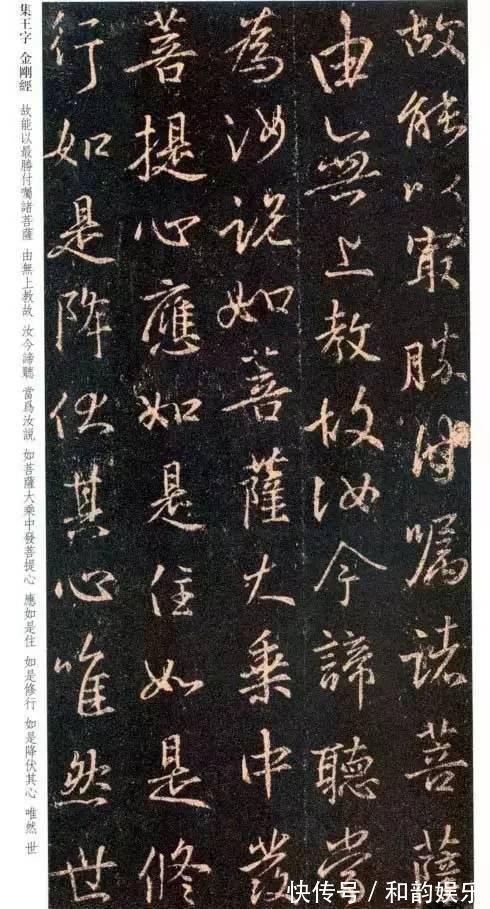 故能以最勝付囑諸菩薩
由無上教故汝今諦聽當
為汝說如菩薩大乘中發
菩提心應如是住如是修
行如是降伏其心唯然世
集王字 金剛經 故能以最勝付囑諸菩薩 由無上教故 汝今諦聽 當爲汝説 如菩薩大乘中發菩提心 應如是住 如是修行 如是降伏其心 唯然 世
快传号/和韵娱乐